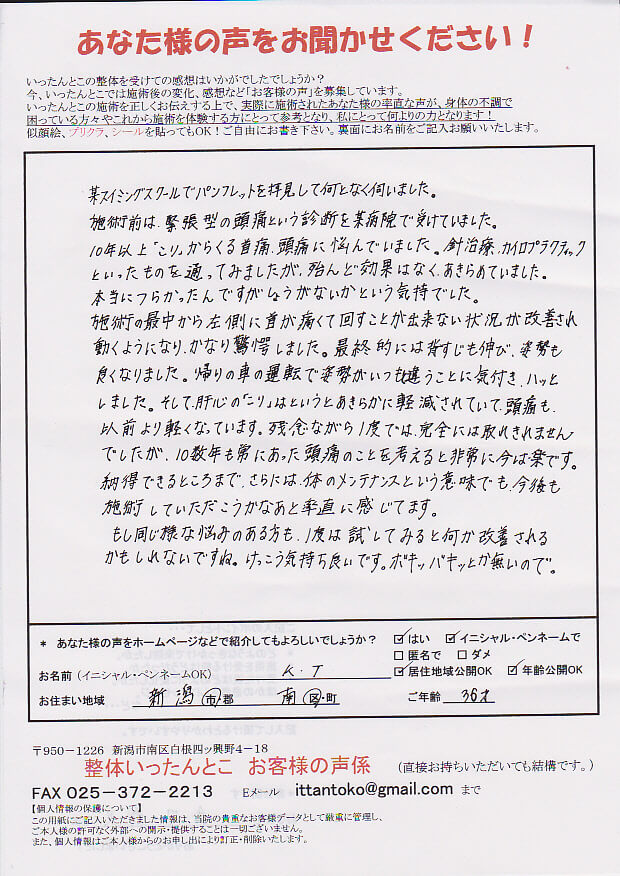 あなた様の声をお聞かせください！
いったんとこの整体を受けての感想はいかがでしたでしょうか？
今、いったんとこでは施術後の変化、感想など「お客様の声」を募集しています。
いったんとこの施術を正しくお伝えする上で、実際に施術されたあなた様の率直な声が、身体の不調で
困っている方々やこれから施術を体験する方にとって参考となり、私にとって何よりの力となります！
似顔絵、プリクラ、シールを貼ってもOK！ご自由にお書き下さい。裏面にお名前をご記入お願いいたします。
某スイミングスクールでパンフレットを拝見して何となく伺いました。
施術前は、緊張型の頭痛という診断を某病院で受けていました。
10年以上「こり」からくる首痛、頭痛に悩んでいました。針治療、カイロプラクティック
といったものを通ってみましたが、殆んど効果はなく、あきらめていました。
本当につらかったんですがしょうがないかという気持でした。
施術の最中から左側に首が痛くて回すことが出来ない状況が改善され
動くようになり、かなり驚愕しました。最終的には背すじも伸び、姿勢も
良くなりました。帰りの車の運転で姿勢がいつも違うことに気付き、ハッと
しました。そして、肝心の「こり」はというとあきらかに軽減されていて、頭痛も、
以前より軽くなっています。残念ながら1度では、完全には取れきれません
でしたが、10数年も常にあった頭痛のことを考えると非常に今は楽です。
納得できるところまで、さらには、体のメンテナンスという意味でも、今後も
施術していただこうかなあと率直に感じてます。
もし同じ様な悩みのある方も、1度は試してみると何か改善される
かもしれないですね。けっこう気持ち良いです。ボキッバキッとか無いので。
* あなた様の声をホームページなどで紹介してもよろしいでしょうか？ ☑はい ☑イニシャル・ペンネームで
□匿名で □ダメ
お名前（イニシャル・ペンネームOK） K.T ☑居住地域公開OK ☑年齢公開OK
お住まい地域 新潟 市・郡 南 区・町 ご年齢 36才
〒950－1226 新潟市南区白根四ッ興野4－18
整体いったんとこ お客様の声係 （直接お持ちいただいても結構です。）
FAX 025-372-2213 Eメール ittantoko@gmail.com まで
【個人情報の保護について】
この用紙にご記入いただきました情報は、当院の貴重なお客様データとして厳重に管理し、
ご本人様の許可なく外部への開示・提供することは一切ございません。
また、個人情報はご本人様からのお申し出により訂正・削除いたします。